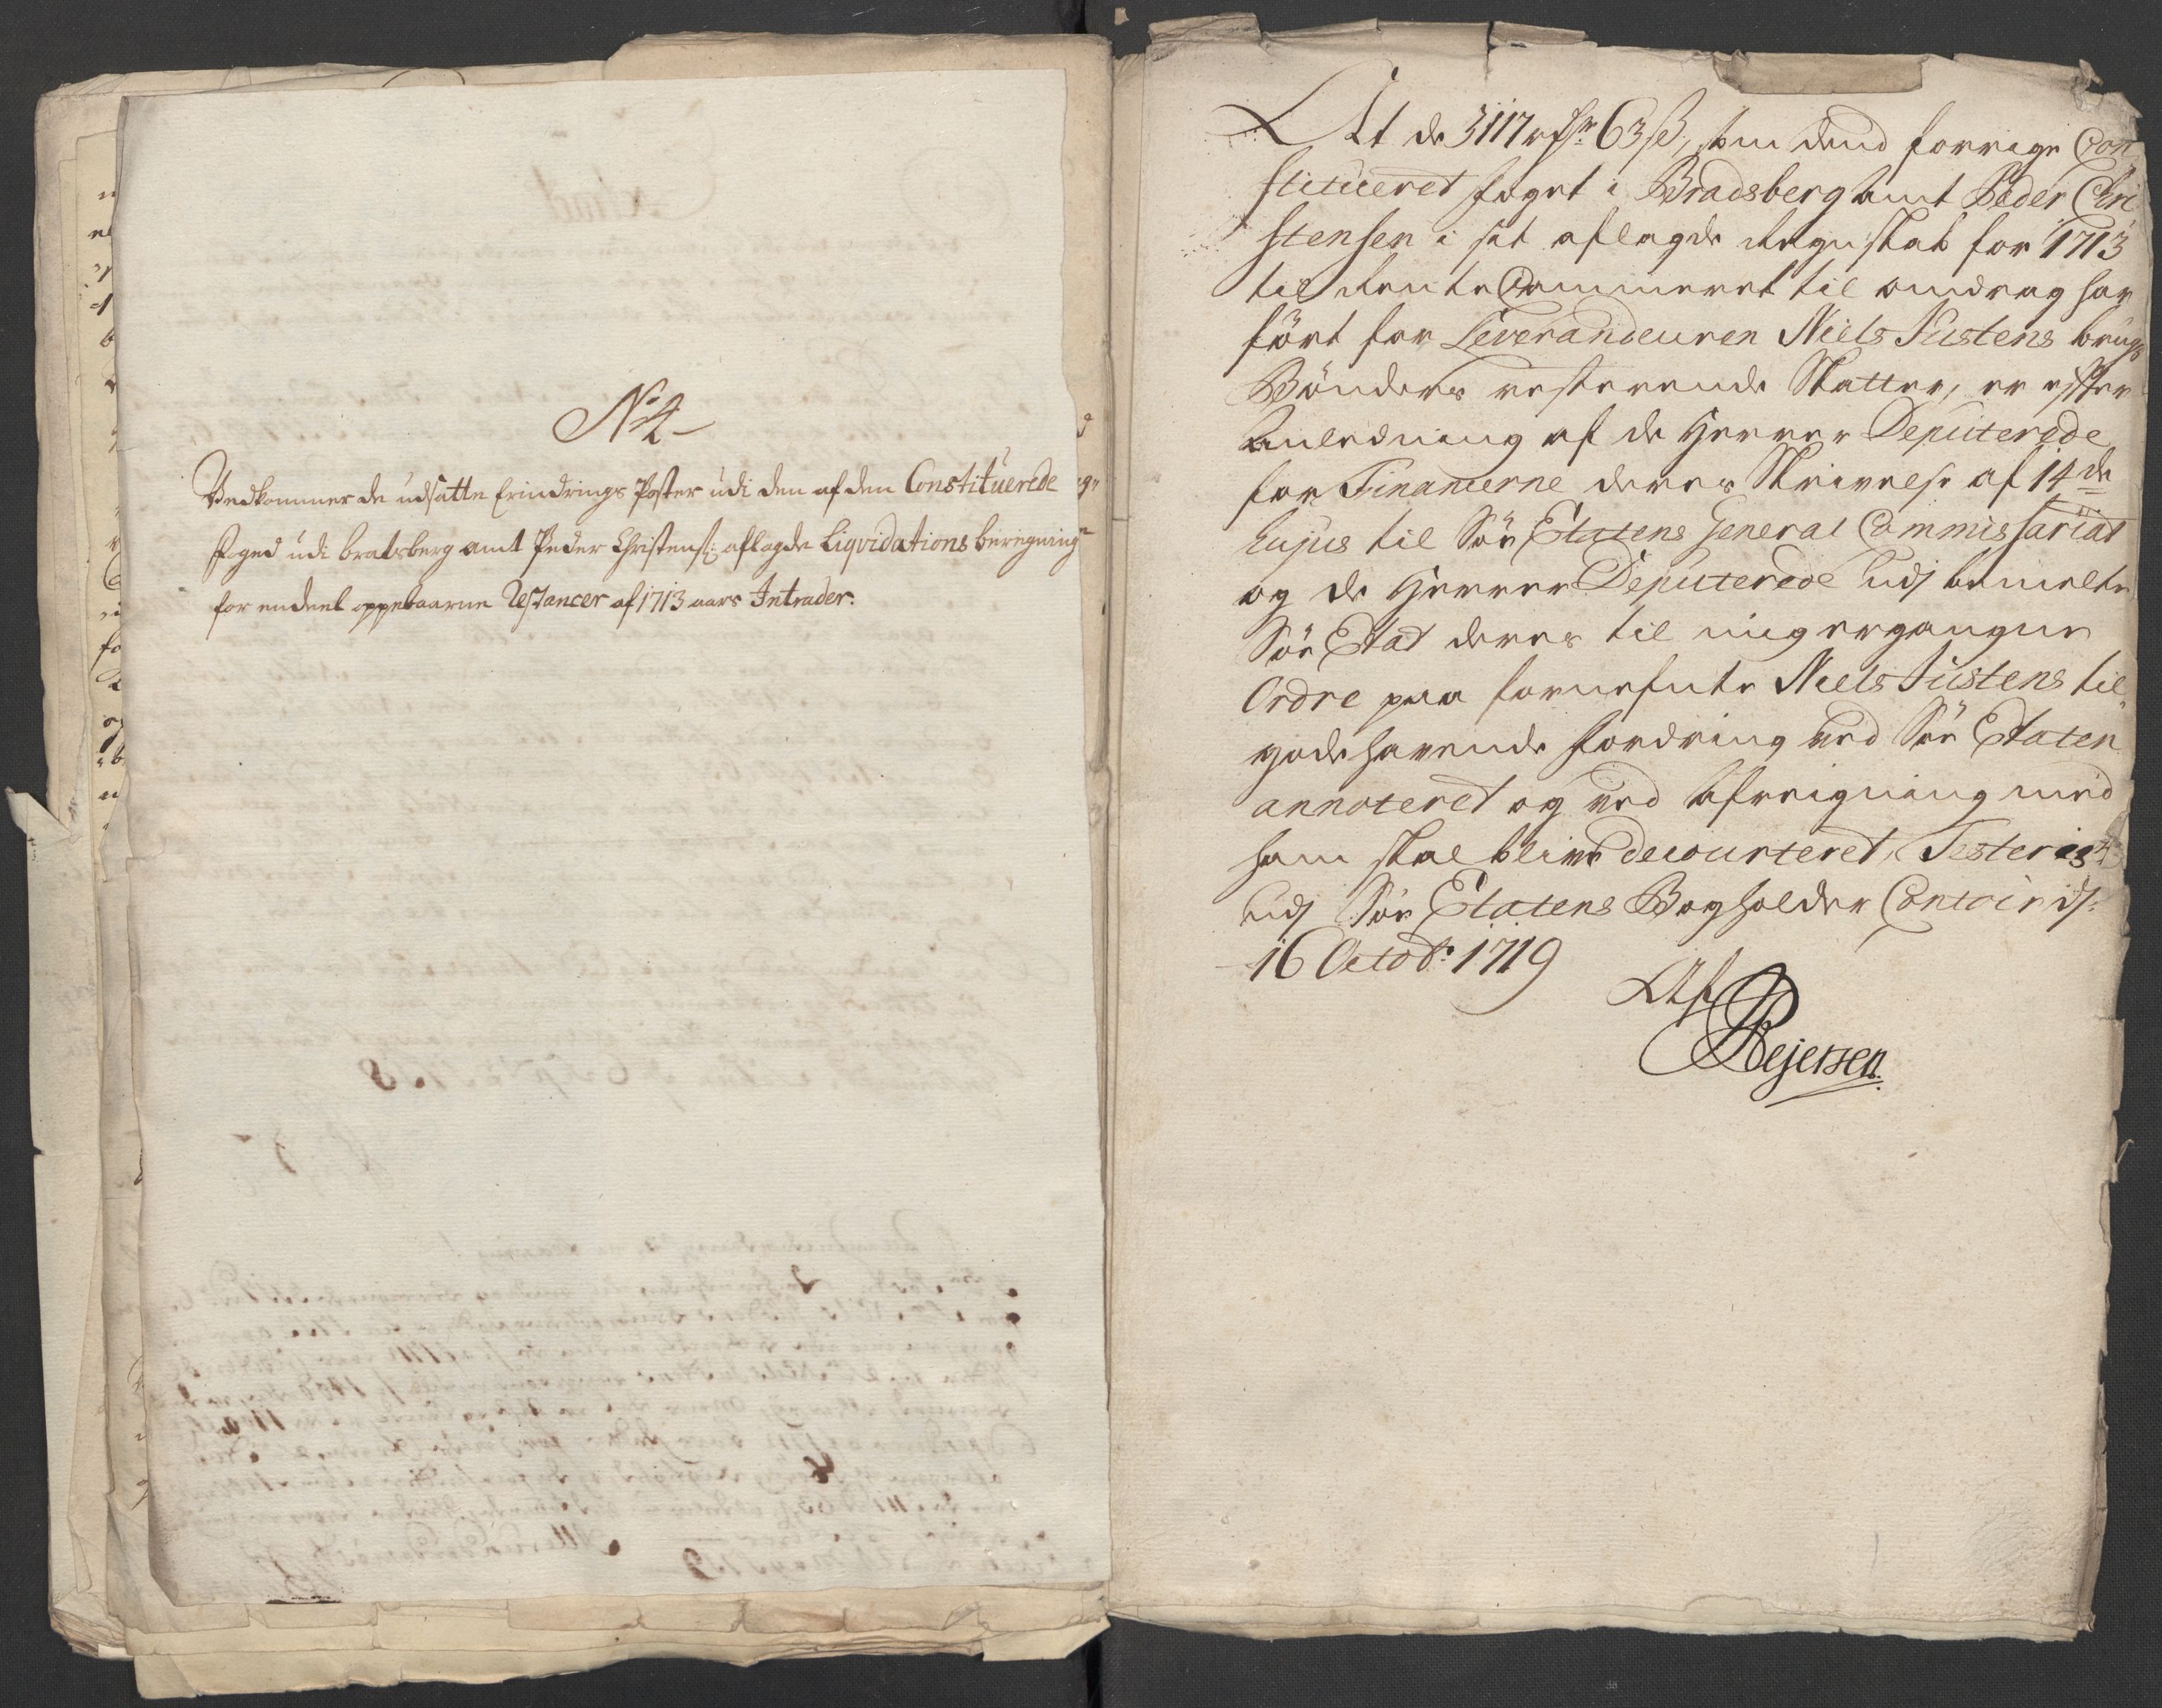 No 4
Vedkommer de udsatte Erindrings Poster udi den af den Constituerede
foged udi bratsberg amt Peder Christens: aflagde Liqvidations beregning
for endeel oppebaarne Restancer af 1713 aars Intrader.
At de 3117 rdr 63 ß, som dend forrige Con
stitueret foget i Bradsberg amt Peder Chri
stensen i sit aflagde Regnskab for 1713
til Rente Cammeret til omdrag har
ført for Leverandeuren Niels Justens brugs
Bønders resterende Skatter, er efter
anledning af de Herrer Deputerede
for Financerne deres Skrivelse af 14de
hujus til Søe Etatens General Commissariat
og de Herrer Deputerede udj bemelte
Søe Etat deres til mig ergangne
Ordre paa fornefnte Niels Justens til
godehavende fordring ved Søe Etaten
annoteret og ved afreigning med
ham skal blive decourteret, Testeris
udj Søe Etatens Bogholder Contoir d:
16 Octobr: 1719